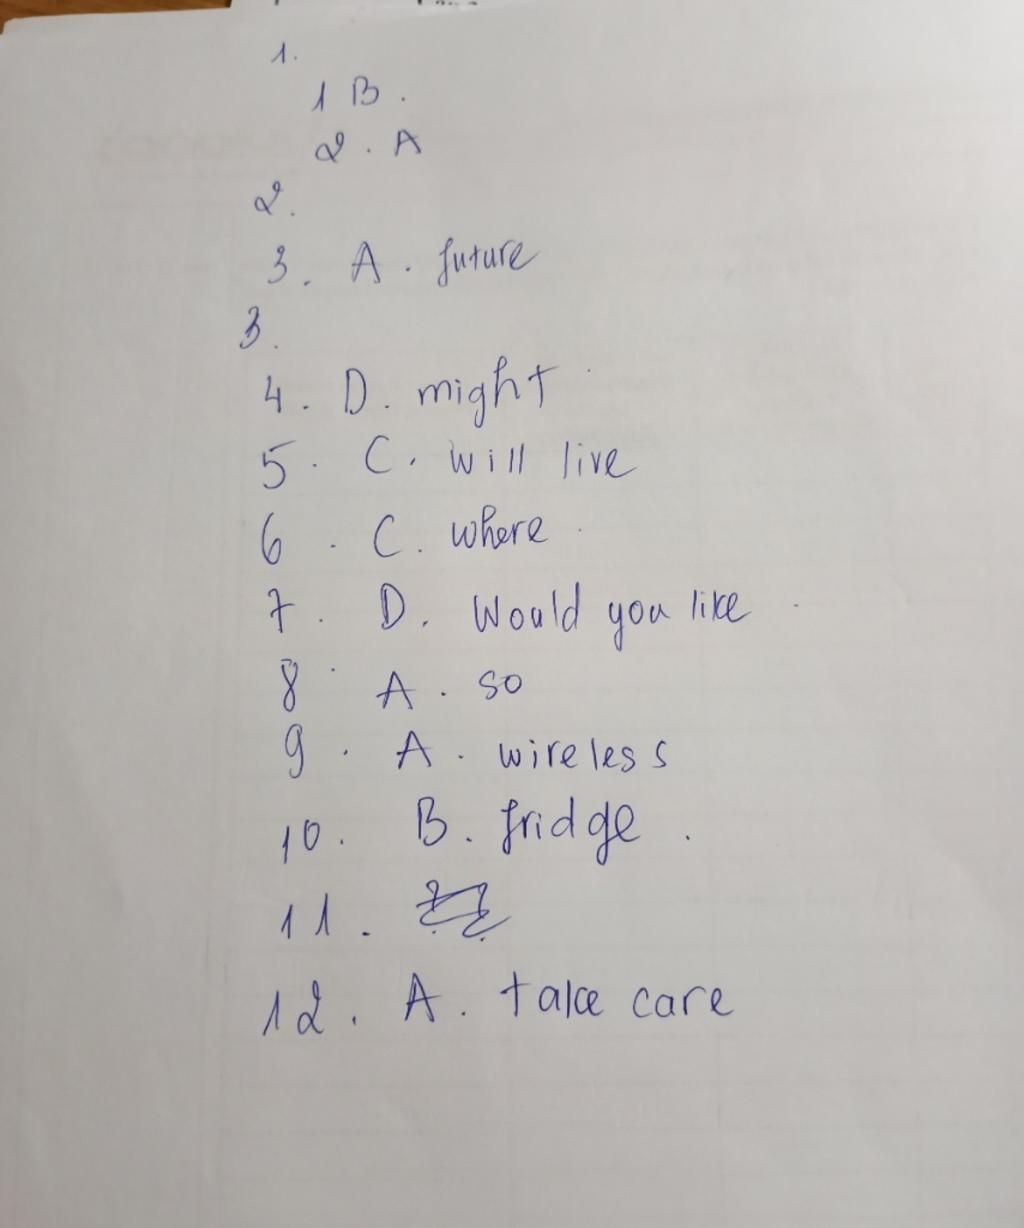 1.
1 B.
2. A
2.
3. A. future
3.
4. D. might
5. C. will live
6. C. where
7. D. Would you like
8. A. so
9. A. wireless
10. B. fridge.
11.
12. A. take care